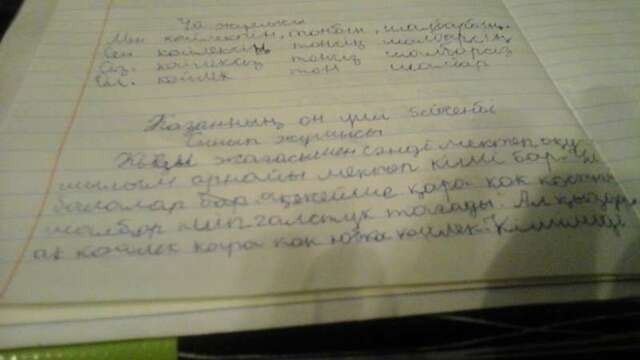 Үй жұмысы
Мен көйлекпін, тонбын, шалбармын.
Сен көйлексің тонсың шалбарсың
Сіз көйлексіз тонсыз шалбарсыз
Ол көйлек тон шалбар
Қазанның он үші бейсенбі
Сынып жұмысы
жағасымен сәнді мектеп оқу
арнайы мектеп киімі бар. Ұл
балалар бар ақ жейде қара көк костюм
шалбар киіп галстук тағады. Ал қыздар
ақ көйлек қара көк юбка көйлек.